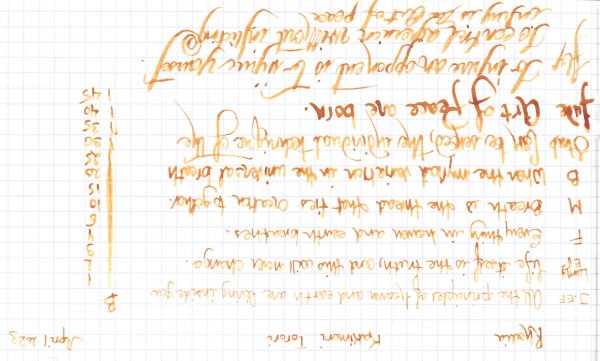 Rhodia Kakimori Torori April 1 2023
JEF All the principles of heaven and earth are living inside you
Long EF Life itself is the truth, and this will never change.
F Everything in heaven and earth breathes.
M Breath is the thread that ties creation together.
B When the myriad variation in the universal breath
Stub Can be sensed, the individual technique of the
Fude Art of Peace are born.
Fly To injure an opponent is to injure yourself.
To control aggression without inflicting
injury is the Art of peace
B
1
5
10
15
20
25
30
35
40
45